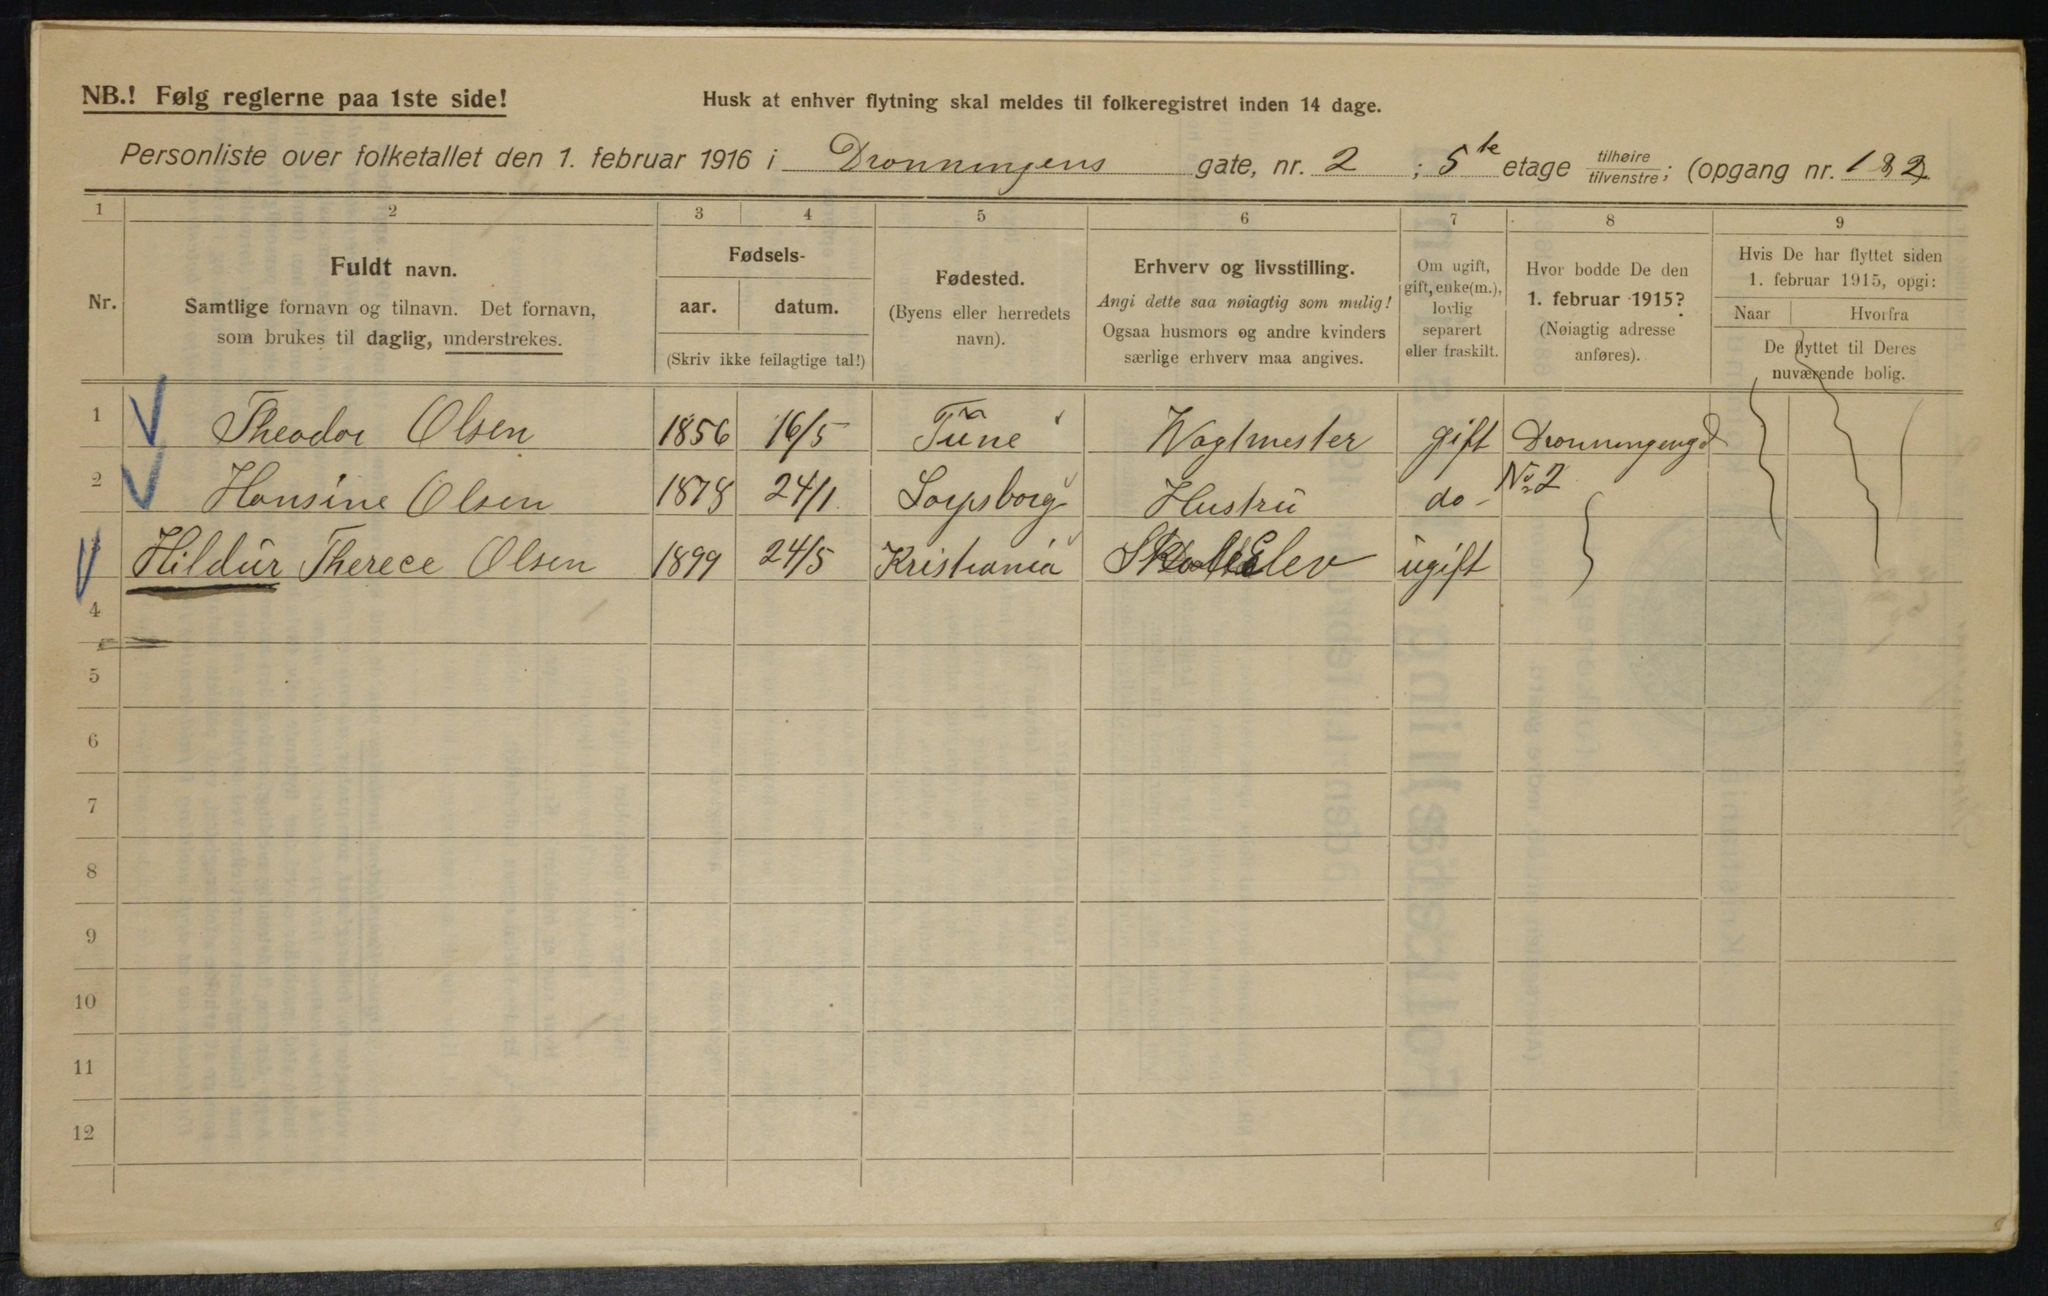 NB.! Følg reglerne paa 1ste side!
Husk at enhver flytning skal meldes til folkeregistret inden 14 dage.
Personliste over folketallet den 1. februar 1916 i Dronningens gate, nr. 2 ; 5te etage tilhøire tilvenstre ; (opgang nr. 1 & 2)
1 2 3 4 5 6 7 8 9
Nr.
Fuldt navn.
Samtlige fornavn og tilnavn. Det fornavn,
som brukes til daglig, understrekes.
Fødsels-
aar. datum.
(Skriv ikke feilagtige tal!)
Fødested.
(Byens eller herredets
navn).
Erhverv og livsstilling.
Angi dette saa nøiagtig som mulig!
Ogsaa husmors og andre kvinders
særlige erhverv maa angives.
Om ugift,
gift, enke(m.),
lovlig
separert
eller fraskilt.
Hvor bodde De den
1. februar 1915?
(Nøiagtig adresse
anføres).
Hvis De har flyttet siden
1. februar 1915, opgi:
Naar Hvorfra
De flyttet til Deres
nuværende bolig.
1 Theodor Olsen 1856 16/5 Tune Vagtmester gift Dronningengd
2 Hansine Olsen 1878 24/1 Sarpsborg Hustru do- No 2
Hildur Therece Olsen 1899 24/5 Kristiania Elev ugift
4
5
6
7
8
9
10
11
12